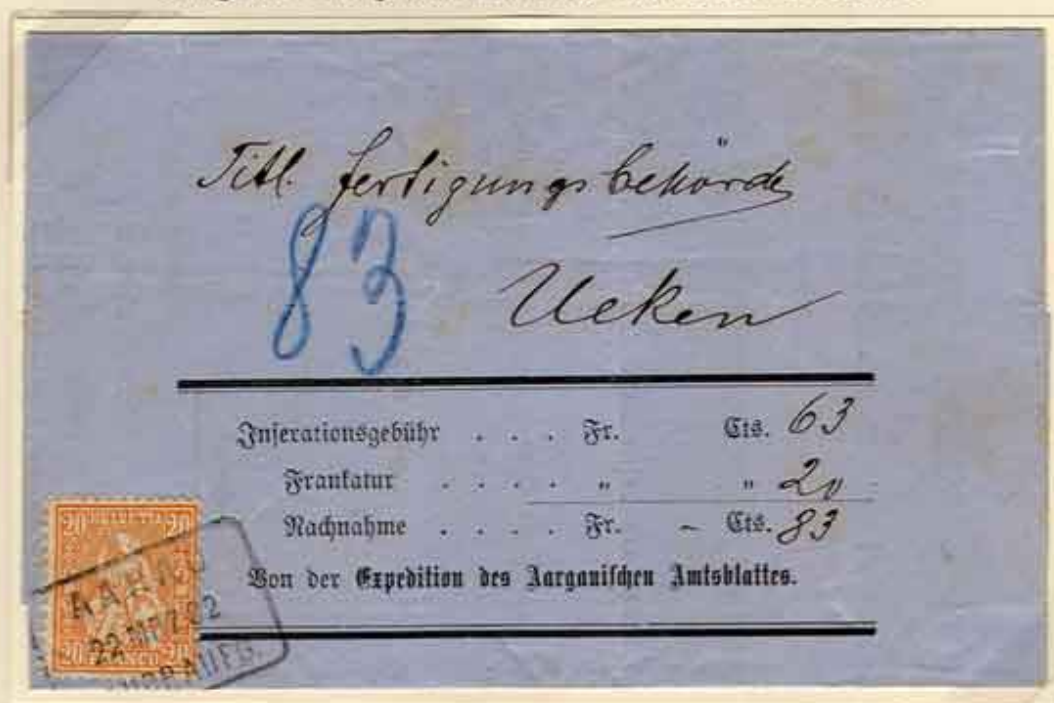 Titl. Fertigungsbehörde
83
Ueken
Inserationsgebühr . . . Fr. Cts. 63
Frankatur . . . . " " 20
Nachnahme . . . . Fr. – Cts. 83
Von der Expedition des Aargauischen Amtsblattes.
20 HELVETIA 20
AARAU
22 MRZ 82
20 FRANCO 20